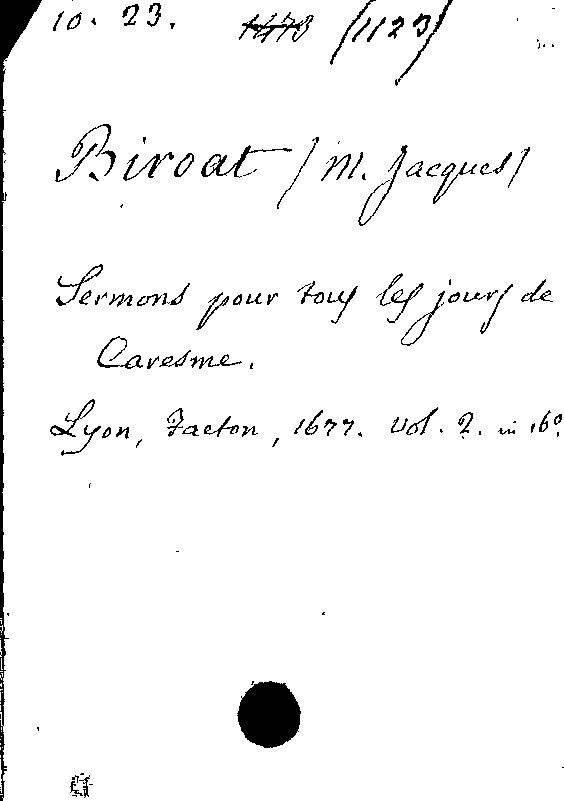 10. 23. 1473 (1123)
Biroat (M. Jacques)
Sermons pour tous les jours de
Caresme.
Lyon, Facton, 1677. Vol. 2. in 16º.